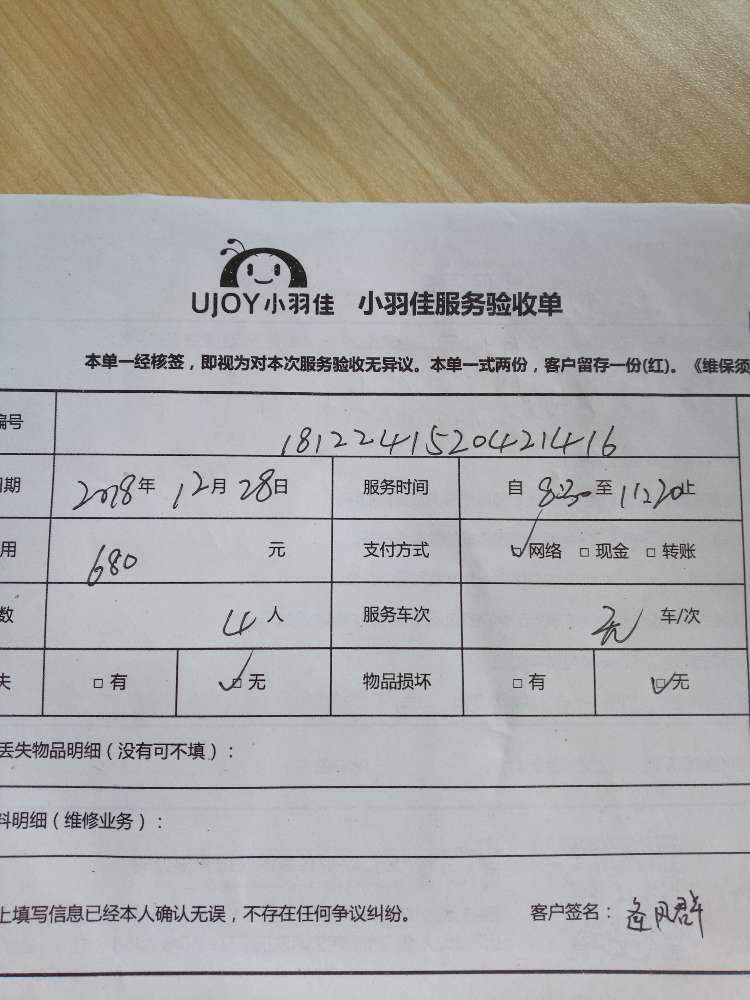 UJOY小羽佳 小羽佳服务验收单
本单一经核签，即视为对本次服务验收无异议。本单一式两份，客户留存一份(红)。《维保须
编号 181224152042141416
日期 2018年 12月 28日 服务时间 自 8:30 至 11:20 止
用 680 元 支付方式 ☑网络 □现金 □转账
数 4人 服务车次 无 车/次
失 □有 ☑无 物品损坏 □有 ☑无
丢失物品明细（没有可不填）：
料明细（维修业务）：
上填写信息已经本人确认无误，不存在任何争议纠纷。 客户签名：逄风群